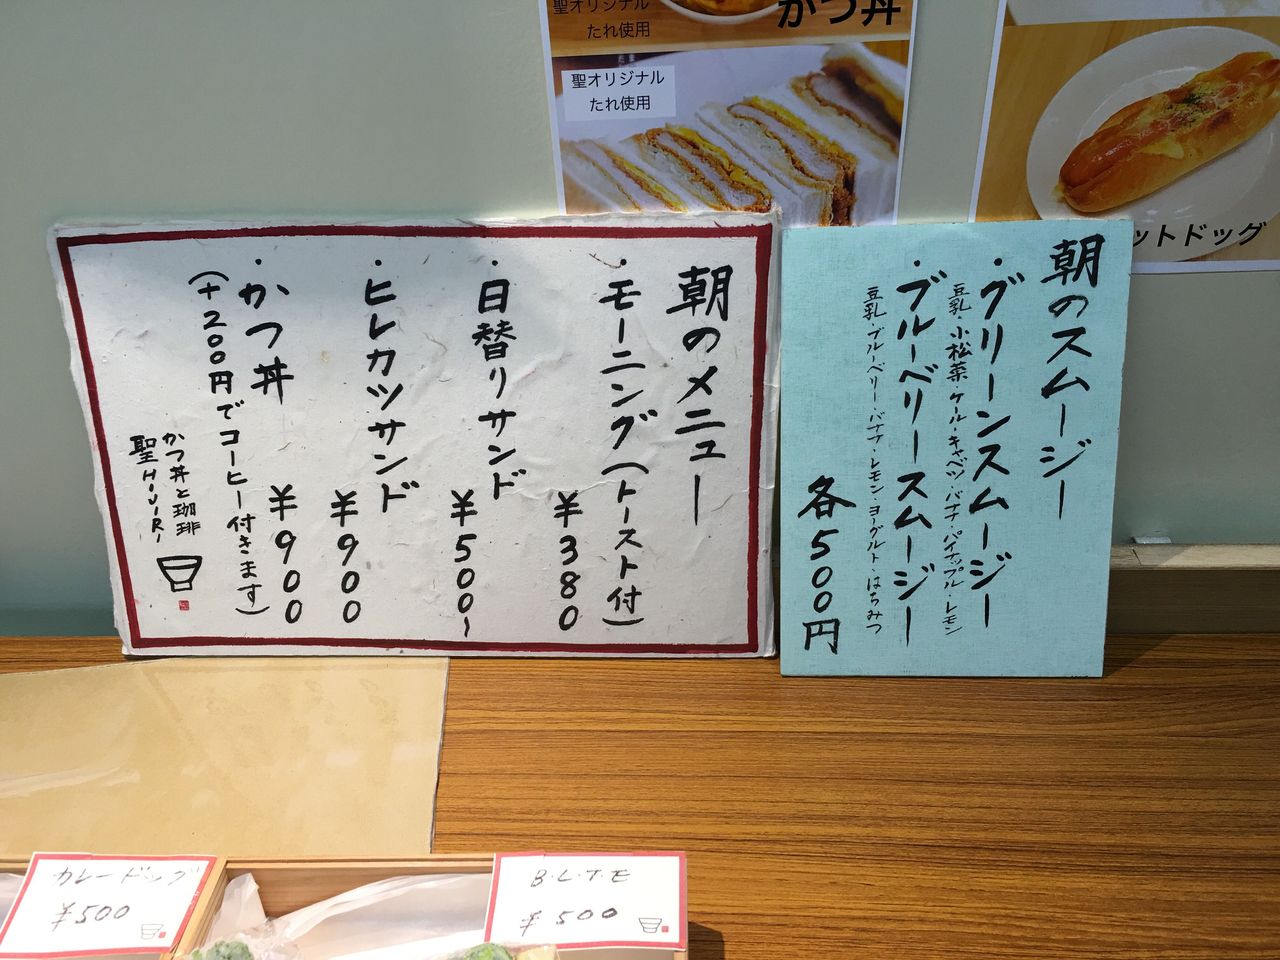 聖オリジナル
たれ使用
かつ丼
聖オリジナル
たれ使用
ットドッグ
朝のメニュー
・モーニング(トースト付)
¥380
・日替りサンド
¥500〜
・ヒレカツサンド
¥900
・かつ丼
¥900
(+200円でコーヒー付きます)
かつ丼と珈琲
聖HIJIRI
朝のスムージー
・グリーンスムージー
豆乳・小松菜・ケール・キャベツ・バナナ・パイナップル・レモン
・ブルーベリースムージー
豆乳・ブルーベリー・バナナ・レモン・ヨーグルト はちみつ
各500円
カレードッグ
¥500
B.L.T.E
¥500